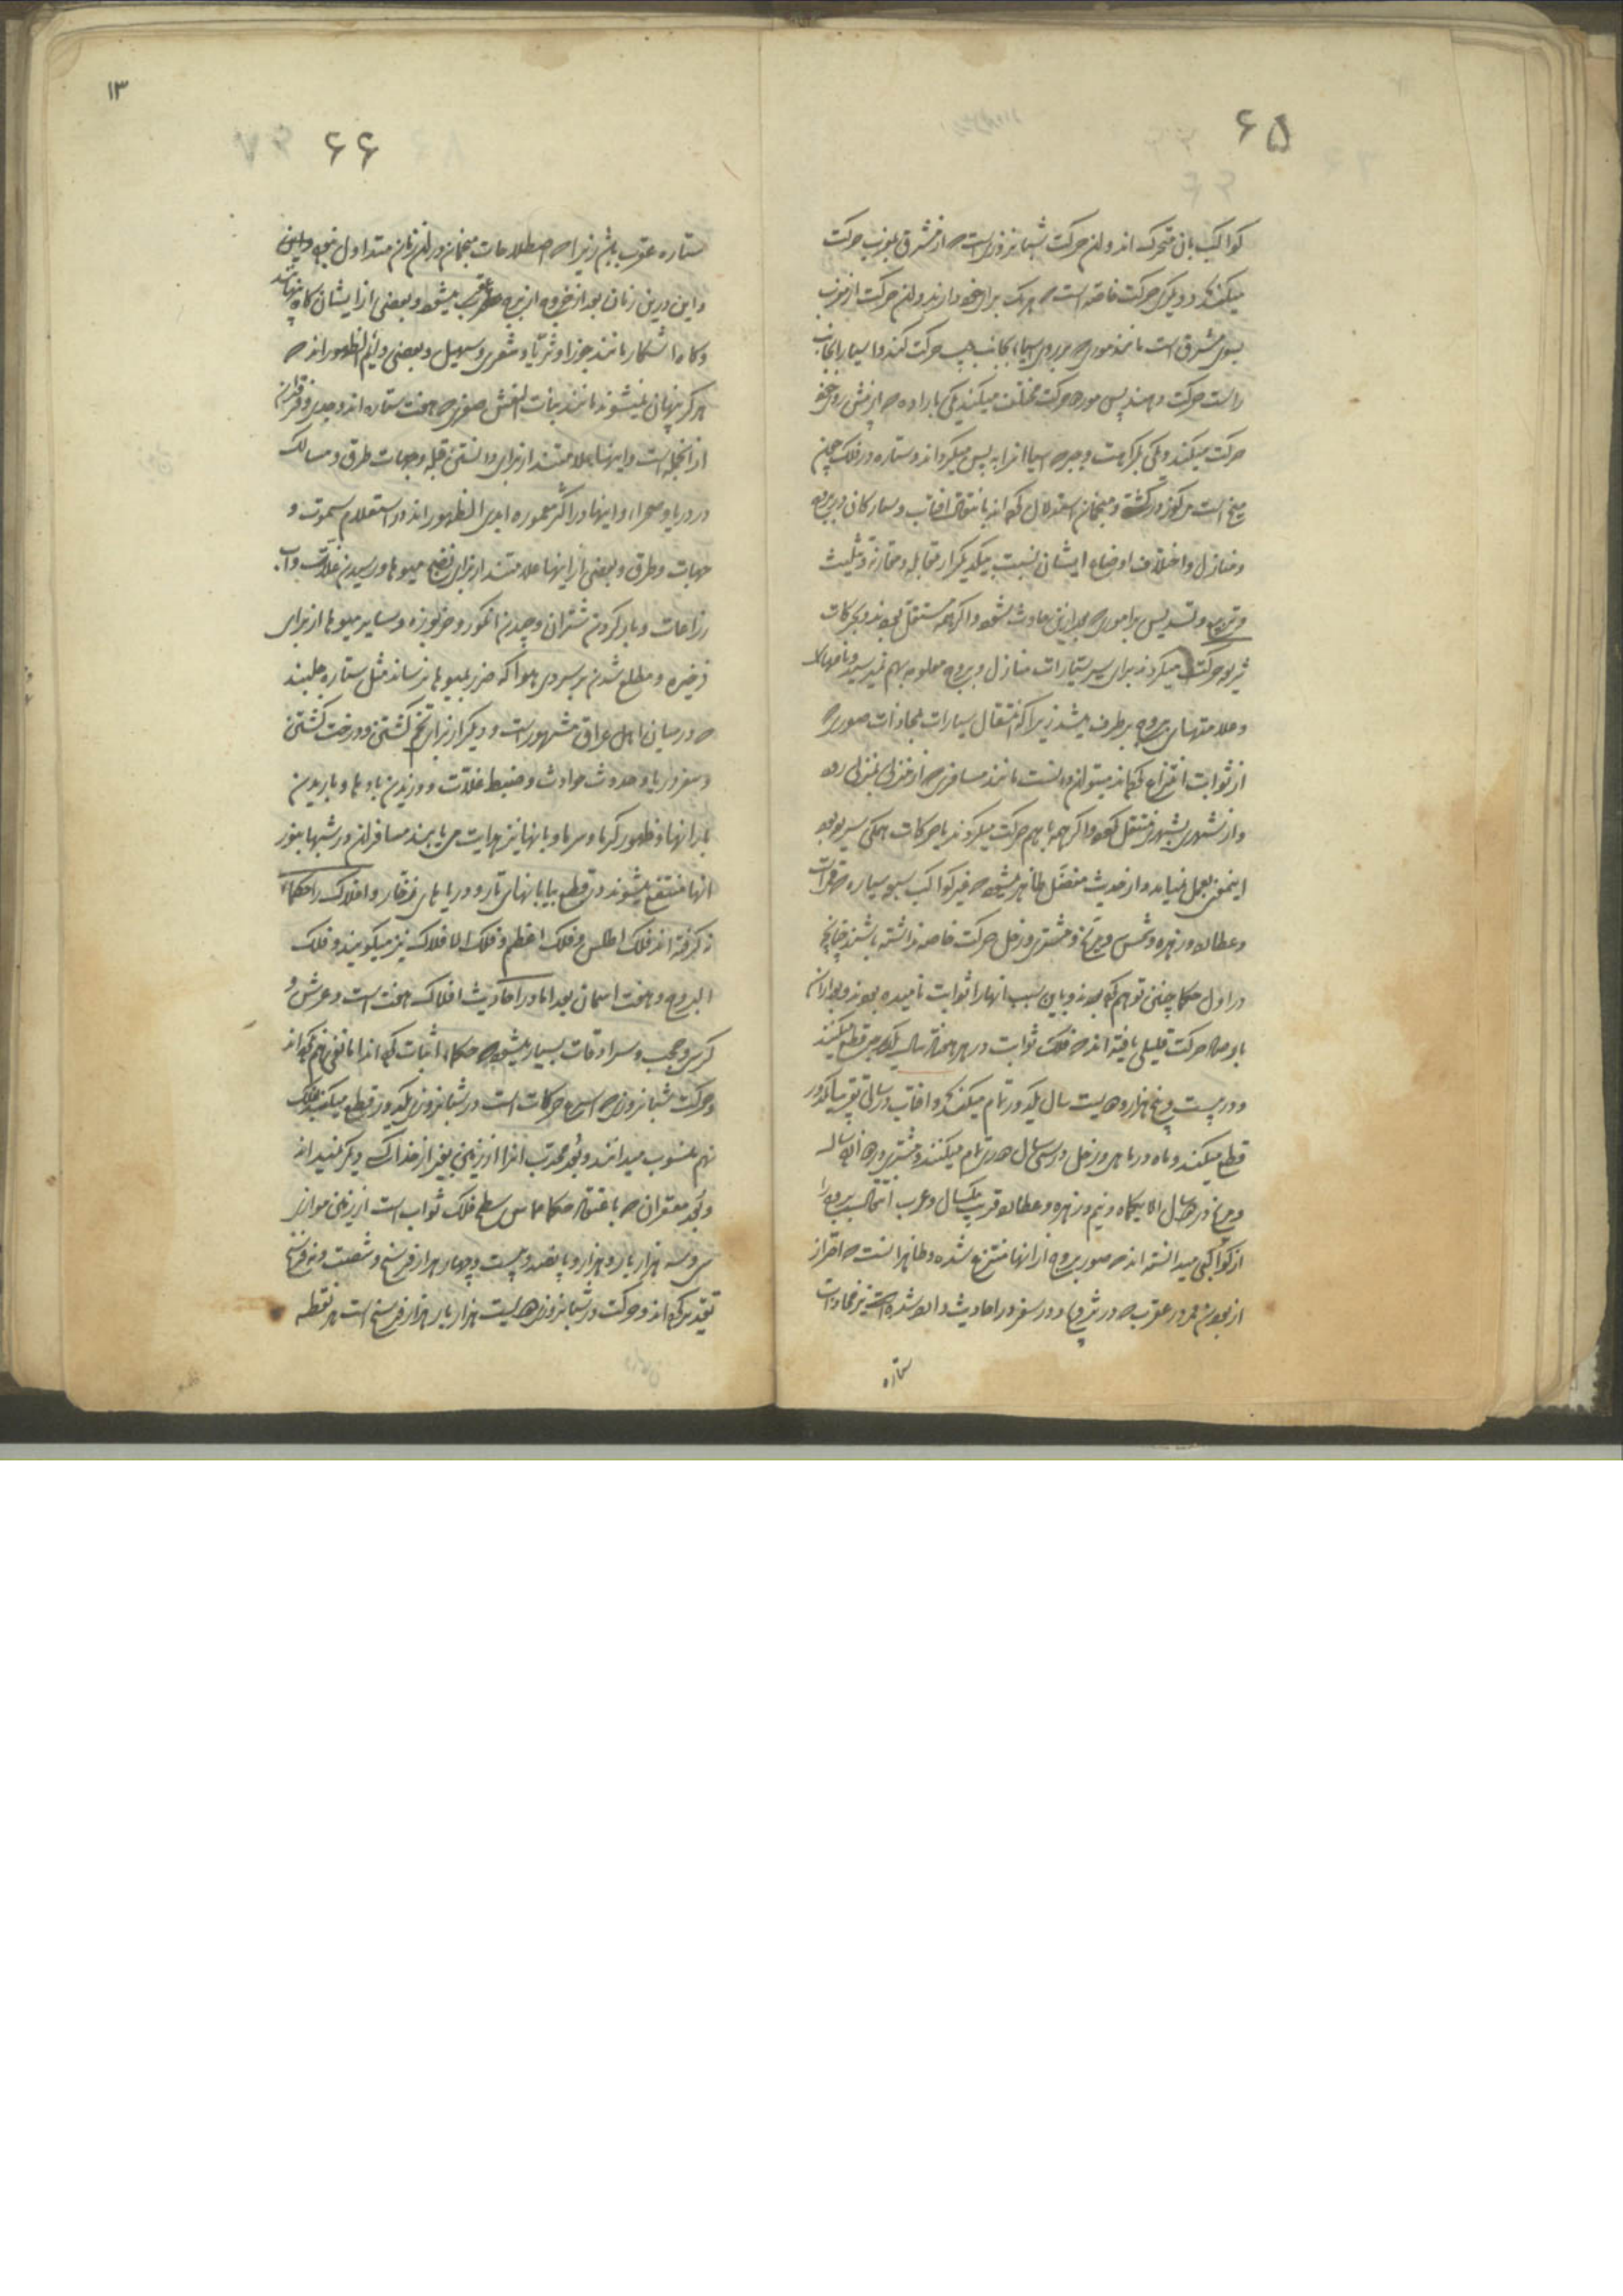 ۶۵
کواکب بان متحرک اند و این حرکت شبانه روزیست که از مشرق بمغرب حرکت
میکنند و دیگری حرکت خاصه است که هر یک برای خود دارند و این حرکت از مغرب
بسوی مشرق است مانند موری که بر روی اسیا بجانب چپ حرکت کند و اسیا را بجانب
راست حرکت دهند پس مور دو حرکت مختلف میکند یکی باراده که از پیش روی خود
حرکت میکند و یکی بکراهت و جبر که اسیا انرا به پس میگرداند و ستاره در فلک چون
میخ است مرکوز درگشته و منجمان استدلال کرده اند بانتقال افتاب و سیارکان در بروج
و منازل و اختلاف اوضاع ایشان نسبت بیکدیگر از مقابله و مقارنه و تثلیث
و تربیع و تسدیس بر اموری که بعد از این حادث شود و اگر همه مستقل بودند و بحرکات
سریع حرکت میکردند برای سیر سیارات منازل و بروج معلوم بهم نمیرسید و نامها
و علامتهای بروج برطرف میشد زیرا که انتقال سیارات بمحاذات صوری که
از ثوابت انتزاع کرده اند میتوان دانست مانند مسافری که از منزلی بمنزلی رود
و از شهری بشهری منتقل گردد و اگر همه با هم حرکت میکردند یا حرکات همگی سریع بود
اینمعنی بعمل نمیامد و از حدیث مفضل ظاهر میشود که غیر کواکب سبعه سیاره که قمر است
و عطارد و زهره و شمس و مریخ و مشتری و زحل حرکت خاصه نداشته باشند چنانچه
در اول حکما چنین توهم کرده بودند و باین سبب انها را ثوابت نامیده بودند و بعد از ان
با رصاد حرکت قلیلی یافته اند که فلک ثوابت در هر هفتاد سال یکدرجه قطع میکنند
و در بیست و پنج هزار و دویست سال یکدور تمام میکند و افتاب در سالی تقریبا یکدور
قطع میکند و ماه در ماهی و زحل در سی سال دوری تمام میکنند و مشتری در دوازده سال
و مریخ در دو سال الا یکماه و نیم و زهره و عطارد قریب بیکسال و عرب انتقال بروج را
از کواکبی میدانسته اند که صور بروج از انها منتزع شده و ظاهرا انست که احتراز
از بودن قمر در عقرب که در تزویج و در سفر در احادیث وارد شده است نیز محاذات
ستاره
۱۳
۶۶
ستاره عقرب باشد زیرا که اصطلاحات منجمان در ان زمان متداول نبود و این
و این درین زمان بعد از خروج از برج عقرب میشود و بعضی از ایشان کاه پنهانند
و کاه اشکار مانند جوزا و ثریا و شعری و سهیل و بعضی دایم الظهور اند که
هرگز پنهان نمیشوند مانند بنات النعش صغری که هفت ستاره اند و جدی و فرقدان
از انجمله است و اینها علامتند از برای دانستن قبله و جهات طرق و مسالک
در دریا و صحرا و اینها در اکثر معموره ابدی الظهور اند در استعلام سموت و
جهات و طرق و بعضی از اینها علامتند از برای نضج میوها و رسیدن غلات و اب
زراعات و بار کردن شتران و چیدن انگور و خربوزه و سایر میوها از برای
ذخیره و مطلع شدن بر سردی هوا که ضرر بمیوها نرساند مثل ستاره جلبند
که در میان اهل عراق مشهور است و دیگر از برای تخم کشتن و درخت کشتن
و سفر دریا و حدوث حوادث و ضبط غلات و وزیدن بادها و باریدن
بارانها و ظهور گرما و سرما و بانها نیز هدایت می یابند مسافران در شبها بنور
انها منتفع میشوند در قطع بیابانهای تار و دریاهای زخار و افلاک را حکماء
نه گرفته اند فلک اطلس و فلک اعظم و فلک الافلاک نیز میگویند و فلک
البروج و هفت اسمان بعد اما در احادیث افلاک هفت است و عرش و
کرسی و حجب و سرادقات بسیار میشود که حکماء اثبات کرده اند اما نفی هم نکرده اند
و حرکت شبانروزی که اسرع حرکات است در شبانروزی یکدور قطع میکند بفلک
نهم منسوب میدانند و بعد محدب انرا از زمین بغیر از خدا کسی دیگر نمیداند
و بعد مقعر ان که باعتقاد حکما مماس سطح فلک ثوابت است از زمین موازی
سی و سه هزار بار هزار و پانصد و بیست و چهار هزار فرسخ و شصت و نه فرسخ
تقدیر کرده اند و حرکت در شبانروزی دویست هزار بار هزار فرسخ است هر نقطه